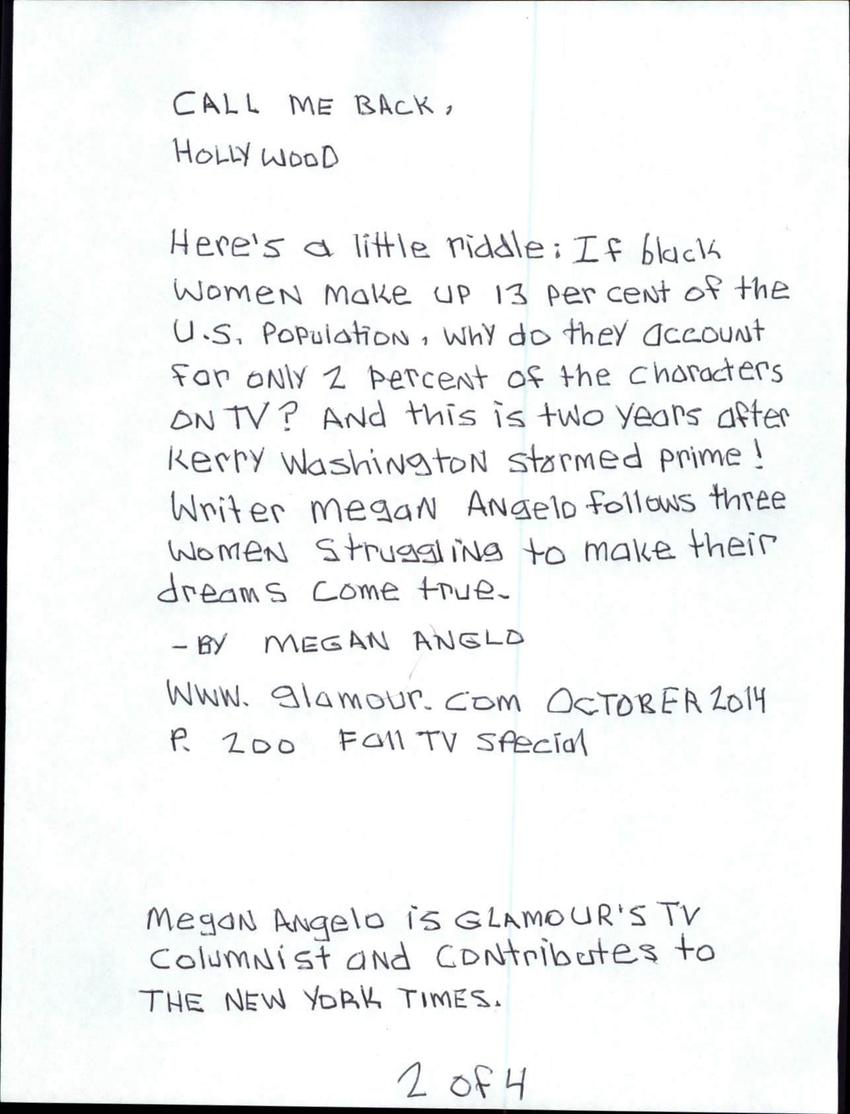 CALL ME BACK,
HOLLYWOOD
Here's a little riddle: If black
Women make up 13 per cent of the
U.S. Population, why do they account
for only 2 percent of the characters
ON TV? And this is two years after
Kerry Washington stormed prime!
Writer Megan Angelo follows three
Women struggling to make their
dreams come true-
- BY MEGAN ANGLO
WWW. glamour. com OCTOBER 2014
P. 200 Fall TV Special
Megan Angelo is GLAMOUR'S TV
Columnist and contributes to
THE NEW YORK TIMES.
2 of 4